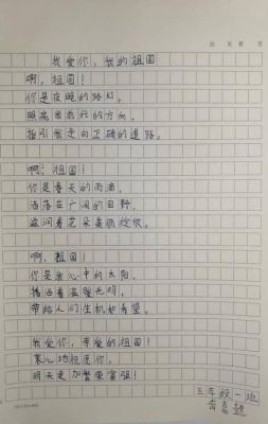 我爱你，我的祖国
啊，祖国！
你是夜晚的路灯。
照亮
的方向，
指引我走向正确的道路。
啊，祖国！
你是春天的雨滴。
洒落在广阔的田野。
滋润着花朵
绽放。
啊，祖国！
你是
心中的太阳，
播洒着温暖光明，
带给人们生机和希望。
我爱你，亲爱的祖国！
衷心地祝愿你，
明天更加繁荣富强！
五年级一班